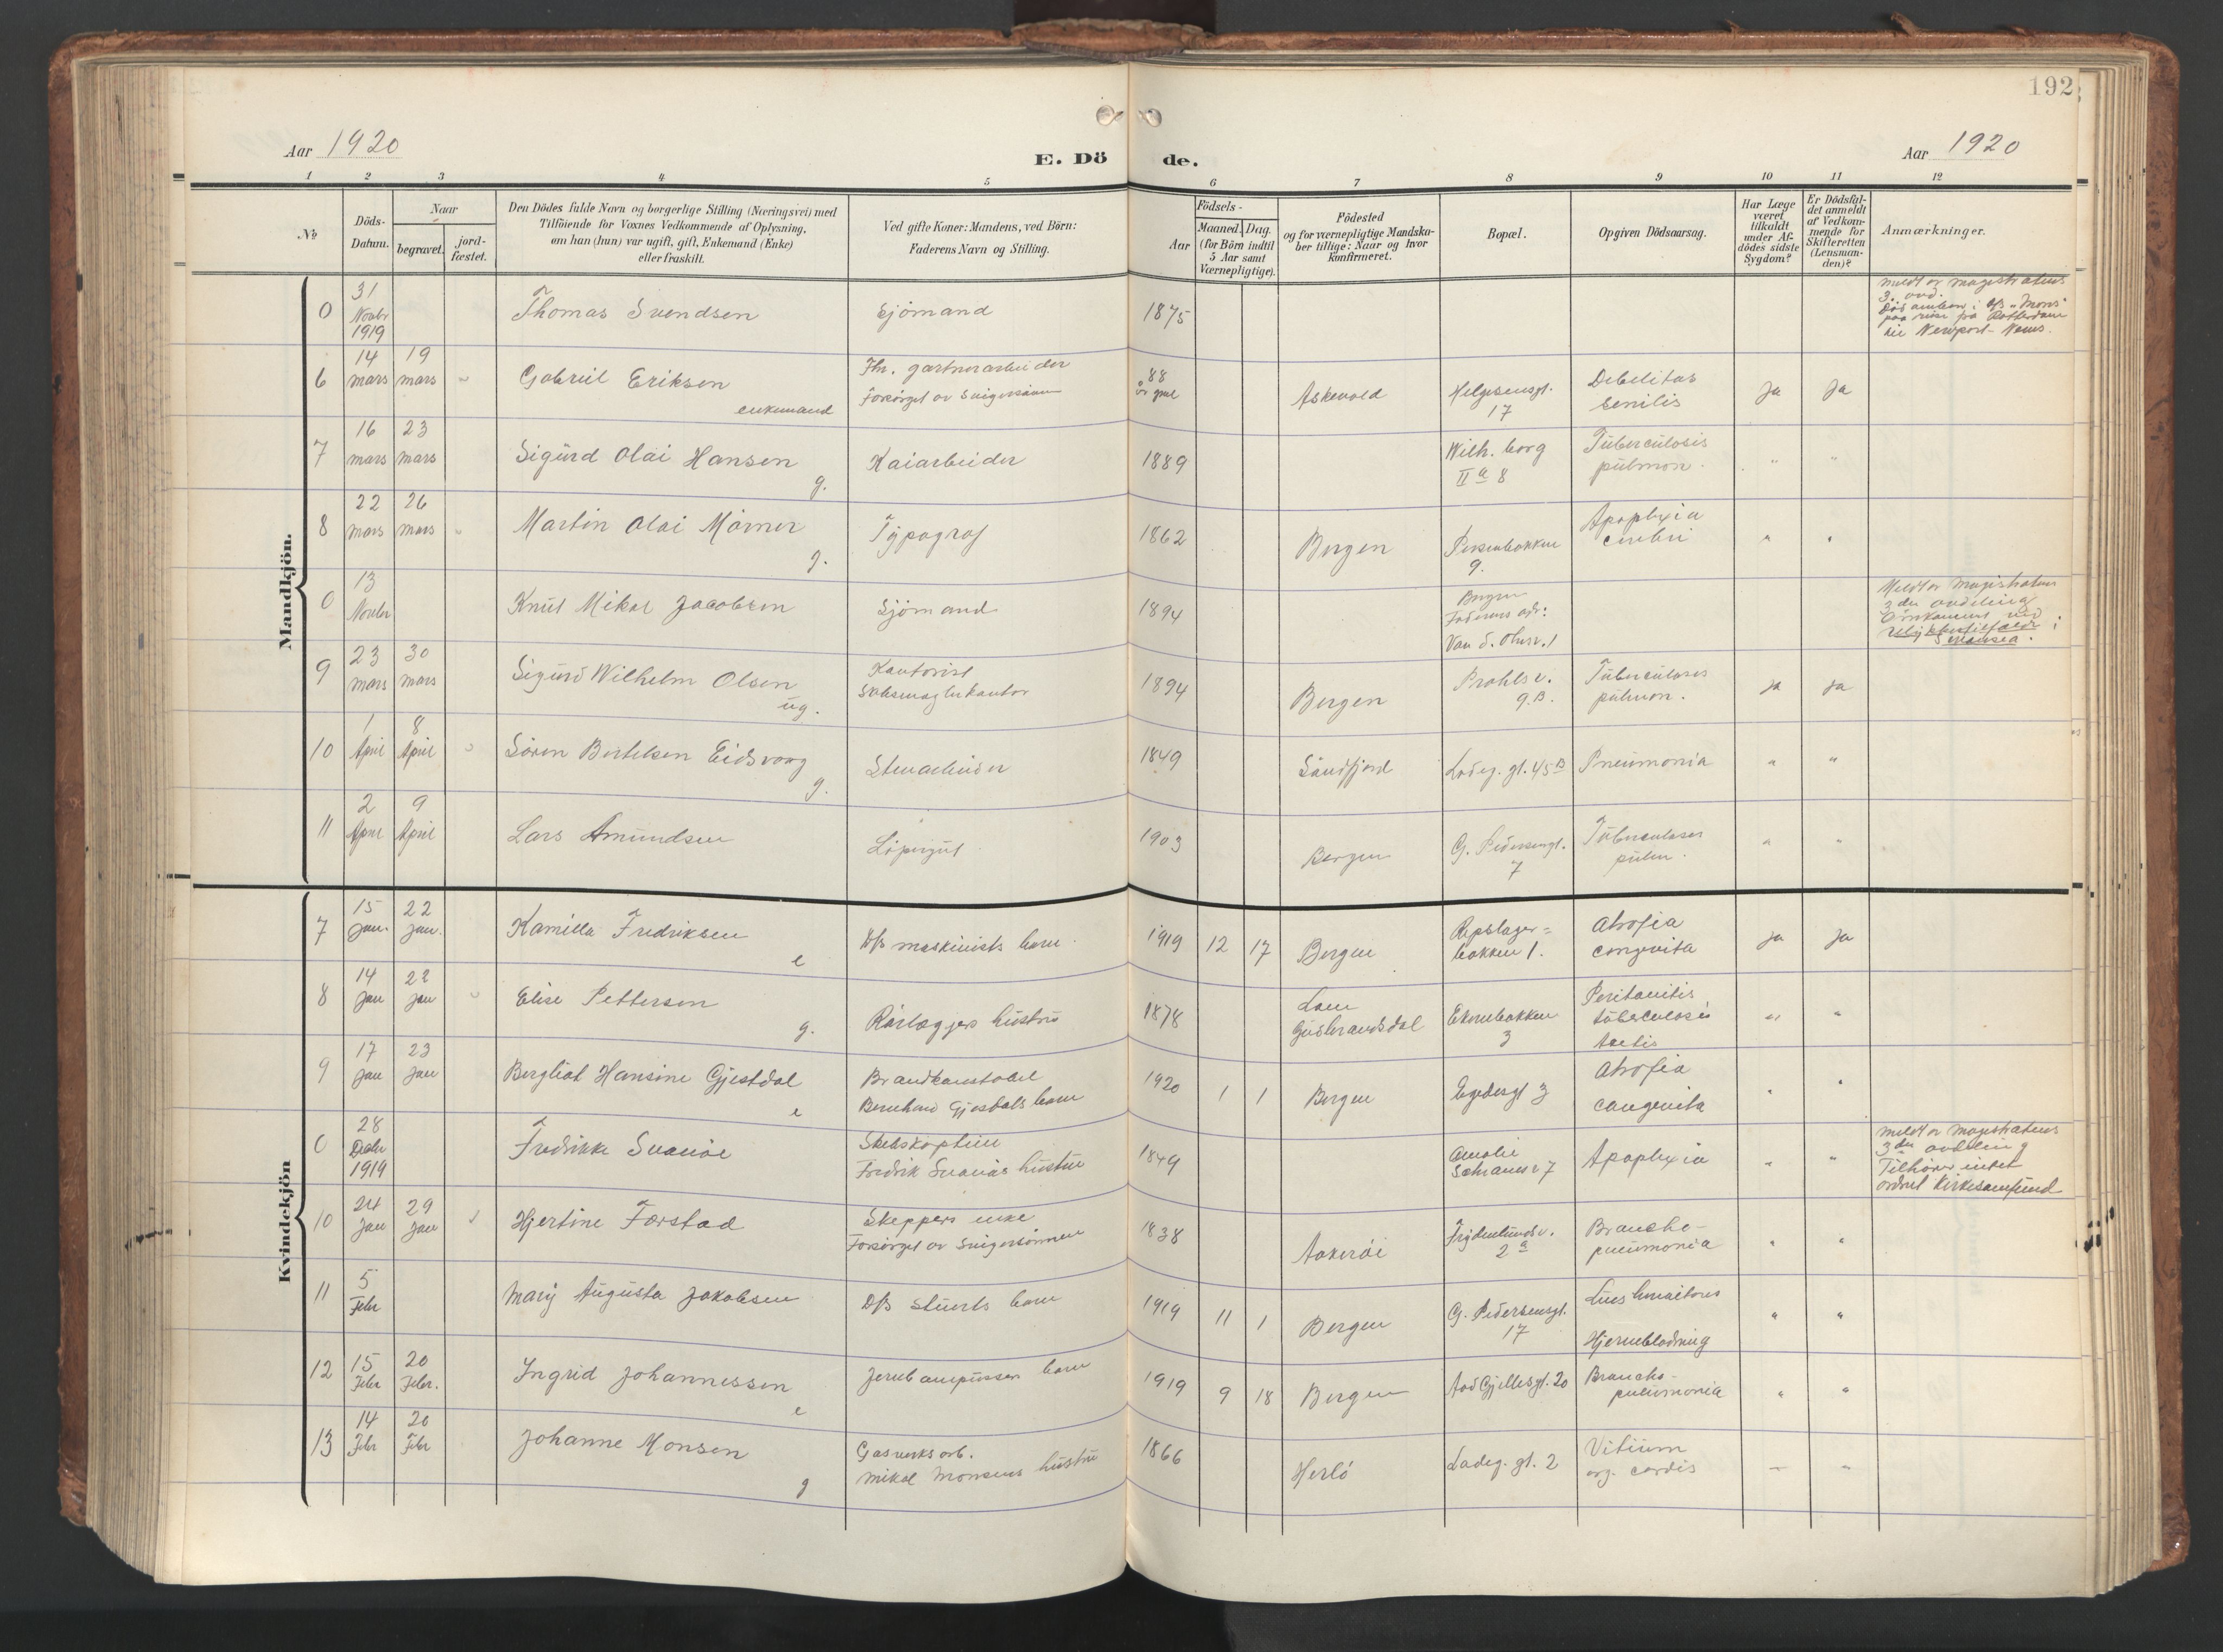 192
Aar 1920
E. Döde.
Aar 1920
1 2 3 4 5 6 7 8 9 10 11 12
No
Döds-Datum.
Naar
begravet.
jord-fæstet.
Den Dödes fulde Navn og borgerlige Stilling (Næringsvei) med
Tilföiende for Voxnes Vedkommende af Oplysning,
om han (hun) var ugift, gift, Enkemand (Enke)
eller fraskilt.
Ved gifte Koner: Mandens, ved Börn:
Faderens Navn og Stilling.
Födsels-
Aar
Maaned. Dag.
(for Börn indtil
5 Aar samt
Værnepligtige).
Födested
og for værnepligtige Mandska-
ber tillige: Naar og hvor
konfirmeret.
Bopæl.
Opgiven Dödsaarsag.
Har Læge
været
tilkaldt
under Af-
dödes sidste
Sygdom?
Er Dödsfal-
det anmeldt
af Vedkom-
mende for
Skifteretten
(Lensman-
den)?
Anmærkninger.
Mandkjön.
0 31 Novbr 1919 Thomas Svendsen Sjömand 1875
meldt av magistratens
3. avd.
Död ombord i D/S "Mons"
paa reise fra Rotterdam
til Newport-News.
6 14 mars 19 mars Gabriel Eriksen enkemand
Fhv. gartnerarbeider
Forsörget av Svigersönn
88 år gml Askevold Helgesensgt. 17 Debilitas senilis Ja Ja
7 16 mars 23 mars Sigurd Olai Hansen g. Kaiarbeider 1889 Wilh. borg II a 8 Tuberculosis pulmon. " "
8 22 mars 26 mars Martin Olai Mörner g. Typograf 1862 Bergen Persenbakken 9. Apoplexia cerebri " "
0 13 Novbr Knut Mikal Jacobsen Sjömand 1894 Bergen
Faderens adr:
Meldt av Magistratens
3die avdeling
Omkommet ved
ulykkestilfælde i
Swansea.
9 23 mars 30 mars Sigurd Wilhelm Olsen ug. Kontorist
Skibsmaglerkontor
1894 Bergen Prahlsv. 9.B. Tuberculosis pulmon. ja ja
10 1 April 8 April Sören Bertelsen Eidsvaag g. Stenarbeider 1849 Sandfjord Ladeg. gt. 45 B Pneumonia " "
11 2 April 9 April Lars Amundsen Löpergut 1903 Bergen G. Pedersengt. 7 Tuberculoses pulm. " "
Kvindekjön
7 15 Jan. 22 Jan. Kamilla Fredriksen e D/S maskinists barn. 1919 12 17 Bergen Repslager=
bakken 1. Atrofia congenita ja ja
8 14 Jan 22 Jan Elise Pettersen g. Rörlægjers hustru 1878 Lom
Gudbrandsdal Ekrebakken 3 Peritonitis
tuberculosis
" "
9 17 Jan 23 Jan Bergliot Hansine Gjestdal e Brandkonstabel
Bernhard Gjesdals barn
1920 1 1 Bergen Egedesgt 3 Atrofia congenita " "
0 28 Decbr 1919 Fredrikke Svanöe Skibskaptein
Fredrik Svanöes hustru
1849 Amalie
Schramsv 7 Apoplexia " "
meldt av magistratens
3die avdeling
Tilhörer intet
ordnet kirkesamfund
10 24 Jan 29 Jan Hjertine Forstad Skeppers enke
Forsörget av Svigersönnen
1838 Aakeröi Frydenlundsv. 2 a Broncho-
pneumonia " "
11 5 Febr Mary Augusta Jakobsen D/S Stuerts barn 1919 11 1 Bergen G. Pedersensgt. 17
Hjerneblödning " "
12 15 Febr 20 Febr. Ingrid Johannessen e Jernbanepussers barn 1919 9 18 Bergen Aad Gjellesgt. 20 Broncho-
pneumonia " "
13 14 Febr 20 Febr Johanne Monsen g Gasverksarb.
Mikal Monsens hustru
1866 Herlö Ladeg. gt. 2 Vitium
org. cordis — "